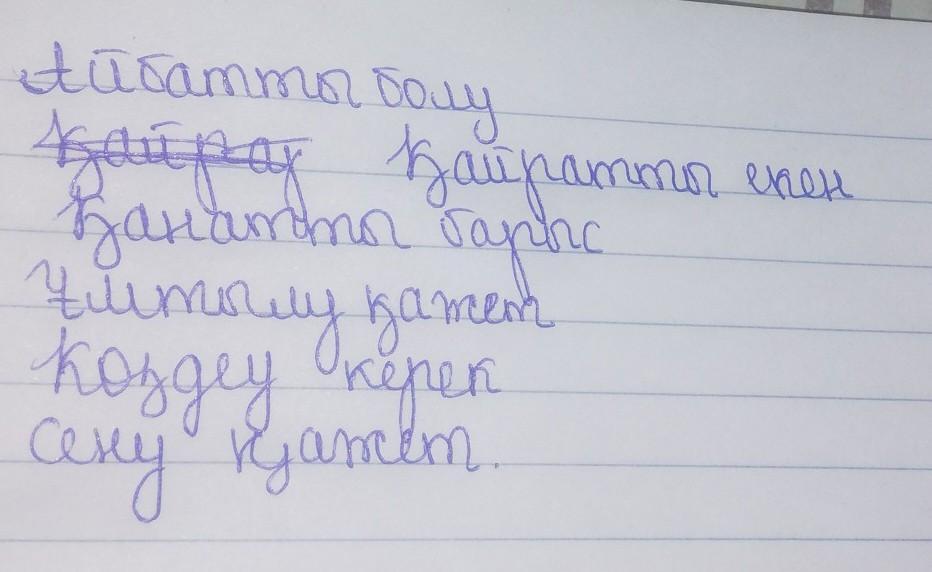 Айбатты болу
Қайрат Қайратты екен
Қанатты барыс
Ұмтылу қажет
Көздеу керек
Сену қажет.